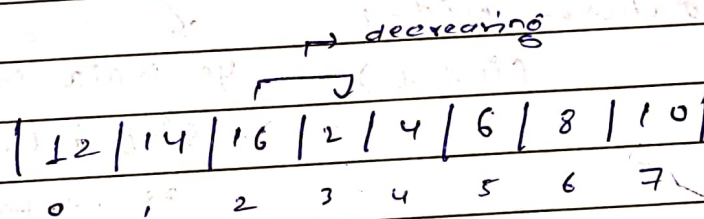 ↦ decreasing
| 12 | 14 | 16 | 2 | 4 | 6 | 8 | 10 |
0 1 2 3 4 5 6 7